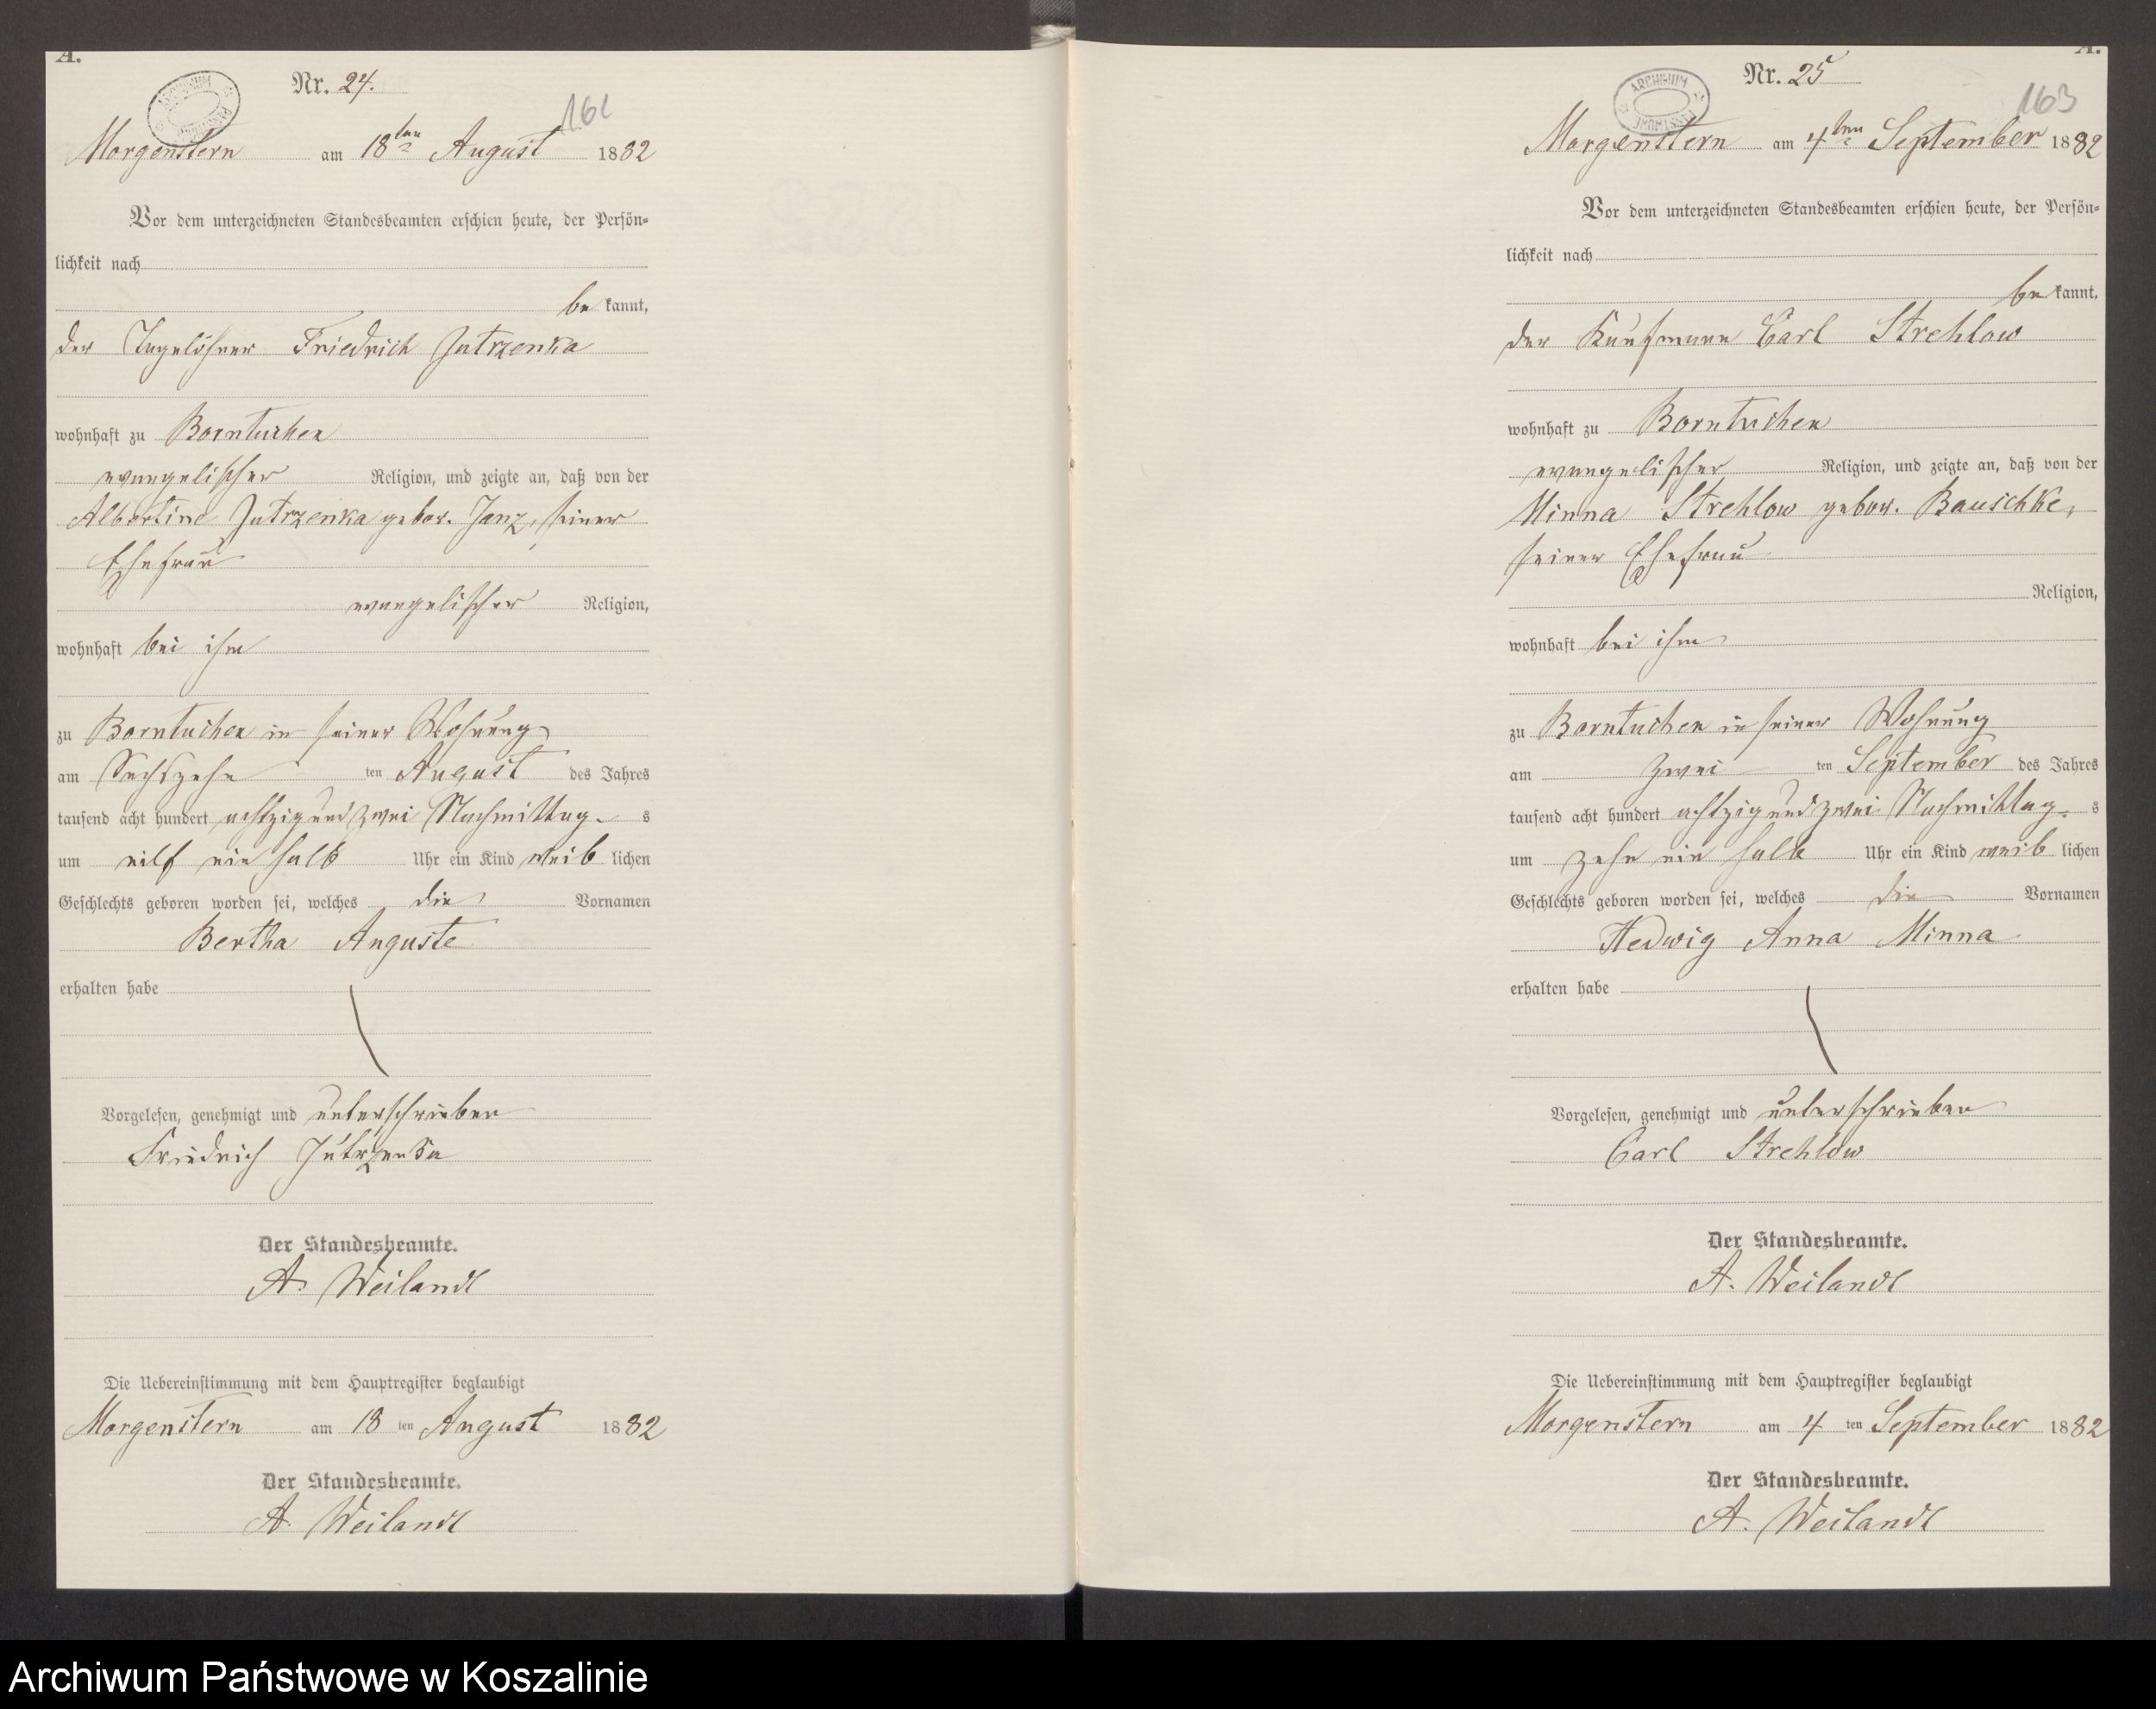 A.
Nr. 24.
162
Morgenstern am 18ten August 1882
Vor dem unterzeichneten Standesbeamten erschien heute, der Persön-
lichkeit nach
be kannt,
der Tagelöhner Friedrich Jutrzenka
wohnhaft zu Borntuchen
evangelischer Religion, und zeigte an, daß von der
Albertine Jutrzenka gebor. Janz, seiner
Ehefrau
evangelischer Religion,
wohnhaft bei ihm
zu Borntuchen in seiner Wohnung
am Sechszehn ten August des Jahres
tausend acht hundert achtzig und zwei Nachmittag s
um eilf ein halb Uhr ein Kind weib lichen
Geschlechts geboren worden sei, welches die Vornamen
Bertha Auguste
erhalten habe
Vorgelesen, genehmigt und unterschrieben
Friedrich Jutrzenka
Der Standesbeamte.
A. Weilandt
Die Uebereinstimmung mit dem Hauptregister beglaubigt
Morgenstern am 18 ten August 1882
Der Standesbeamte.
A. Weilandt
A.
Nr. 25
ARCHIWUM
163
Morgenstern am 4ten September 1882
Vor dem unterzeichneten Standesbeamten erschien heute, der Persön-
lichkeit nach
be kannt,
der Kaufmann Carl Strehlow
wohnhaft zu Borntuchen
evangelischer Religion, und zeigte an, daß von der
Minna Strehlow gebor. Bauschke,
seiner Ehefrau
Religion,
wohnhaft bei ihm
zu Borntuchen in seiner Wohnung
am zwei ten September des Jahres
tausend acht hundert achtzig und zwei Nachmittag s
um zehn ein halb Uhr ein Kind weib lichen
Geschlechts geboren worden sei, welches die Vornamen
Hedwig Anna Minna
erhalten habe
Vorgelesen, genehmigt und unterschrieben
Carl Strehlow
Der Standesbeamte.
A. Weilandt
Die Uebereinstimmung mit dem Hauptregister beglaubigt
Morgenstern am 4 ten September 1882
Der Standesbeamte.
A. Weilandt
Archiwum Państwowe w Koszalinie